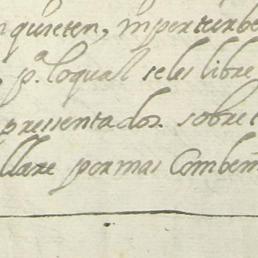 nquieten, niperturbe
p.ª loqual seles libre
pressentados. sobre
llare pormas Combe